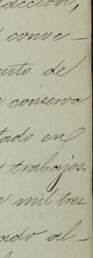 acción,
conve-
nto de
conserva
tado en
trabajos.
mil tres
ado al-